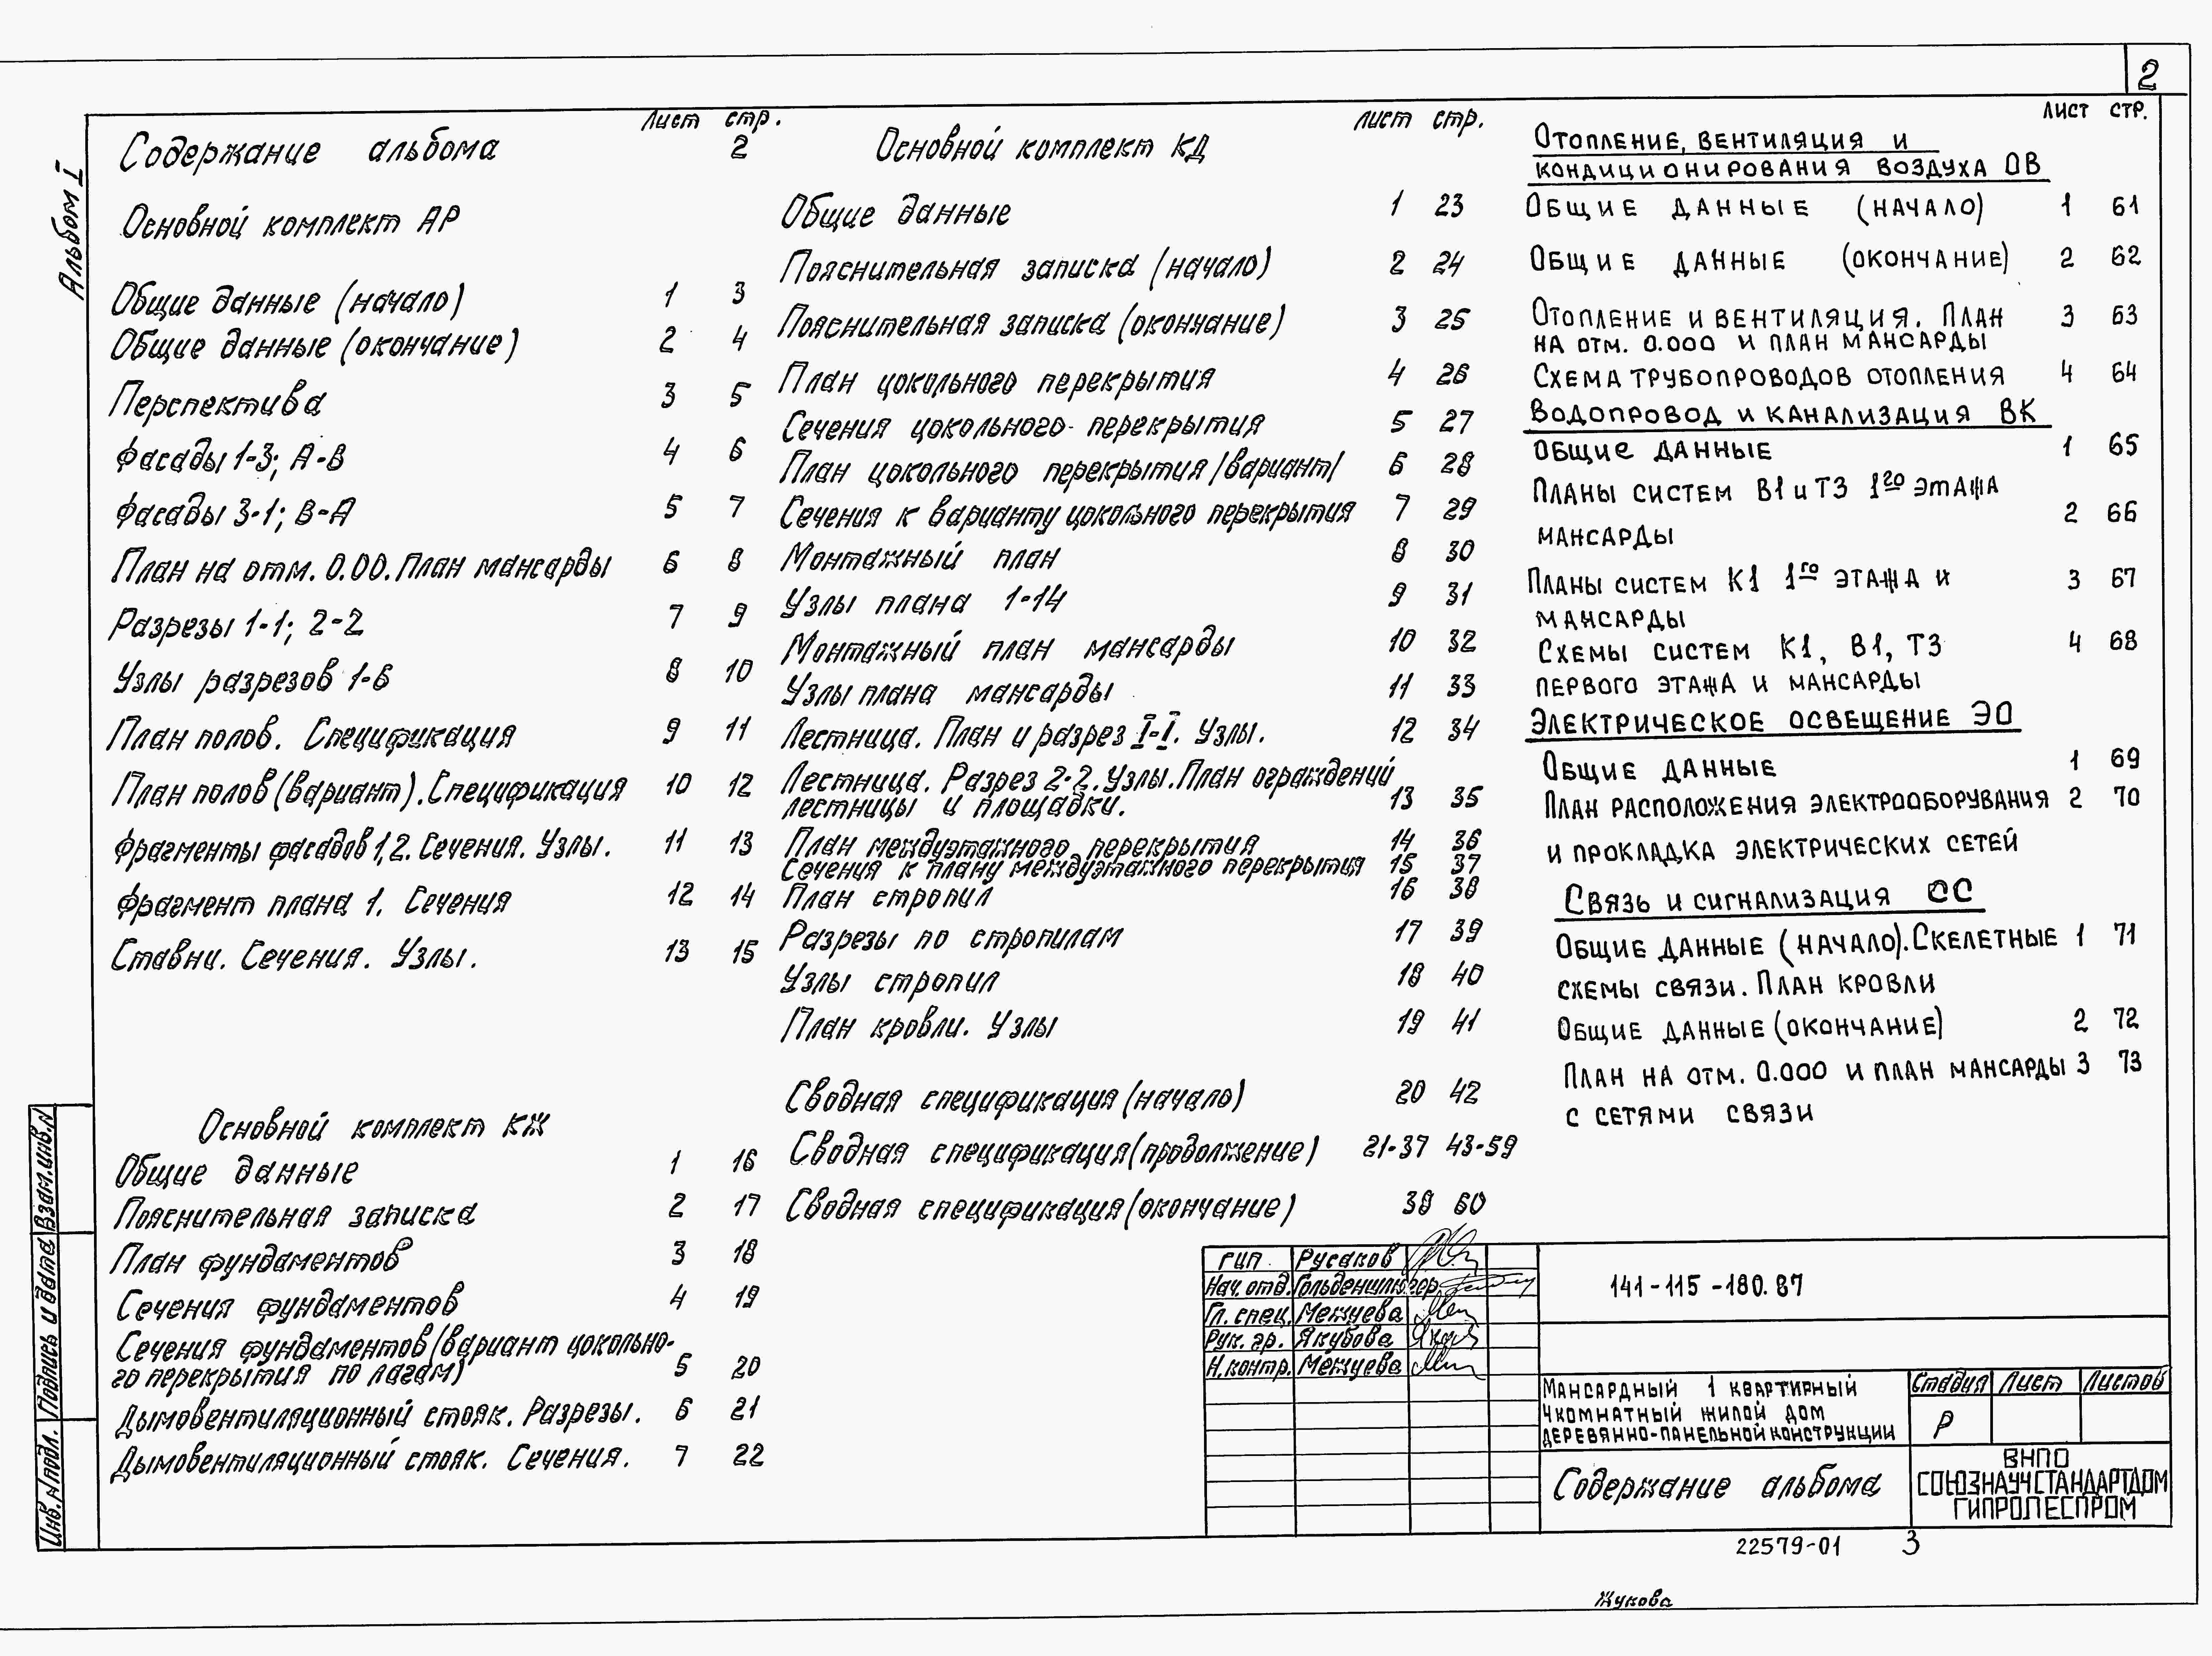 2
Альбом I
Лист стр.
Содержание альбома 2
Основной комплект АР
Общие данные (начало) 1 3
Общие данные (окончание) 2 4
Перспектива 3 5
Фасады 1-3; А-В 4 6
Фасады 3-1; В-А 5 7
План на отм. 0.00. План мансарды 6 8
Разрезы 1-1; 2-2 7 9
Узлы разрезов 1-6 8 10
План полов. Спецификация 9 11
План полов (вариант). Спецификация 10 12
Фрагменты фасадов 1,2. Сечения. Узлы. 11 13
Фрагмент плана 1. Сечения 12 14
Ставни. Сечения. Узлы. 13 15
Основной комплект КЖ
Общие данные 1 16
Пояснительная записка 2 17
План фундаментов 3 18
Сечения фундаментов 4 19
Сечения фундаментов (вариант цокольно-
го перекрытия по лагам) 5 20
Дымовентиляционный стояк. Разрезы. 6 21
Дымовентиляционный стояк. Сечения. 7 22
лист стр.
Основной комплект КД
Общие данные 1 23
Пояснительная записка (начало) 2 24
Пояснительная записка (окончание) 3 25
План цокольного перекрытия 4 26
Сечения цокольного перекрытия 5 27
План цокольного перекрытия /вариант/ 6 28
Сечения к варианту цокольного перекрытия 7 29
Монтажный план 8 30
Узлы плана 1-14 9 31
Монтажный план мансарды 10 32
Узлы плана мансарды 11 33
Лестница. План и разрез I-I. Узлы. 12 34
Лестница. Разрез 2-2. Узлы. План ограждений
лестницы и площадки. 13 35
План междуэтажного перекрытия 14 36
Сечения к плану междуэтажного перекрытия 15 37
План стропил 16 38
Разрезы по стропилам 17 39
Узлы стропил 18 40
План кровли. Узлы 19 41
Сводная спецификация (начало) 20 42
Сводная спецификация (продолжение) 21-37 43-59
Сводная спецификация (окончание) 38 60
лист стр.
Отопление, вентиляция и
кондиционирования воздуха ОВ
Общие данные (начало) 1 61
Общие данные (окончание) 2 62
Отопление и вентиляция. План 3 63
на отм. 0.000 и план мансарды
Схема трубопроводов отопления 4 64
Водопровод и канализация ВК
Общие данные 1 65
Планы систем В1 и Т3 1го этажа
мансарды 2 66
Планы систем К1 1го этажа и 3 67
мансарды
Схемы систем К1, В1, Т3 4 68
первого этажа и мансарды
Электрическое освещение ЭО
Общие данные 1 69
План расположения электрооборувания 2 70
и прокладка электрических сетей
Связь и сигнализация СС
Общие данные (начало). Скелетные 1 71
схемы связи. План кровли
Общие данные (окончание) 2 72
План на отм. 0.000 и план мансарды 3 73
с сетями связи
Взам.инв.N
Подпись и дата
Инв.N подл.
ГИП Русаков
Нач. отд. Гольденшлюгер
Гл. спец. Межуева
Рук. гр. Якубова
Н. контр. Межуева
141-115-180.87
Мансардный 1 квартирный
4комнатный жилой дом
деревянно-панельной конструкции
Стадия Лист Листов
Р
Содержание альбома
ВНПО
СОЮЗНАУЧСТАНДАРТДОМ
ГИПРОЛЕСПРОМ
22579-01 3
Жукова